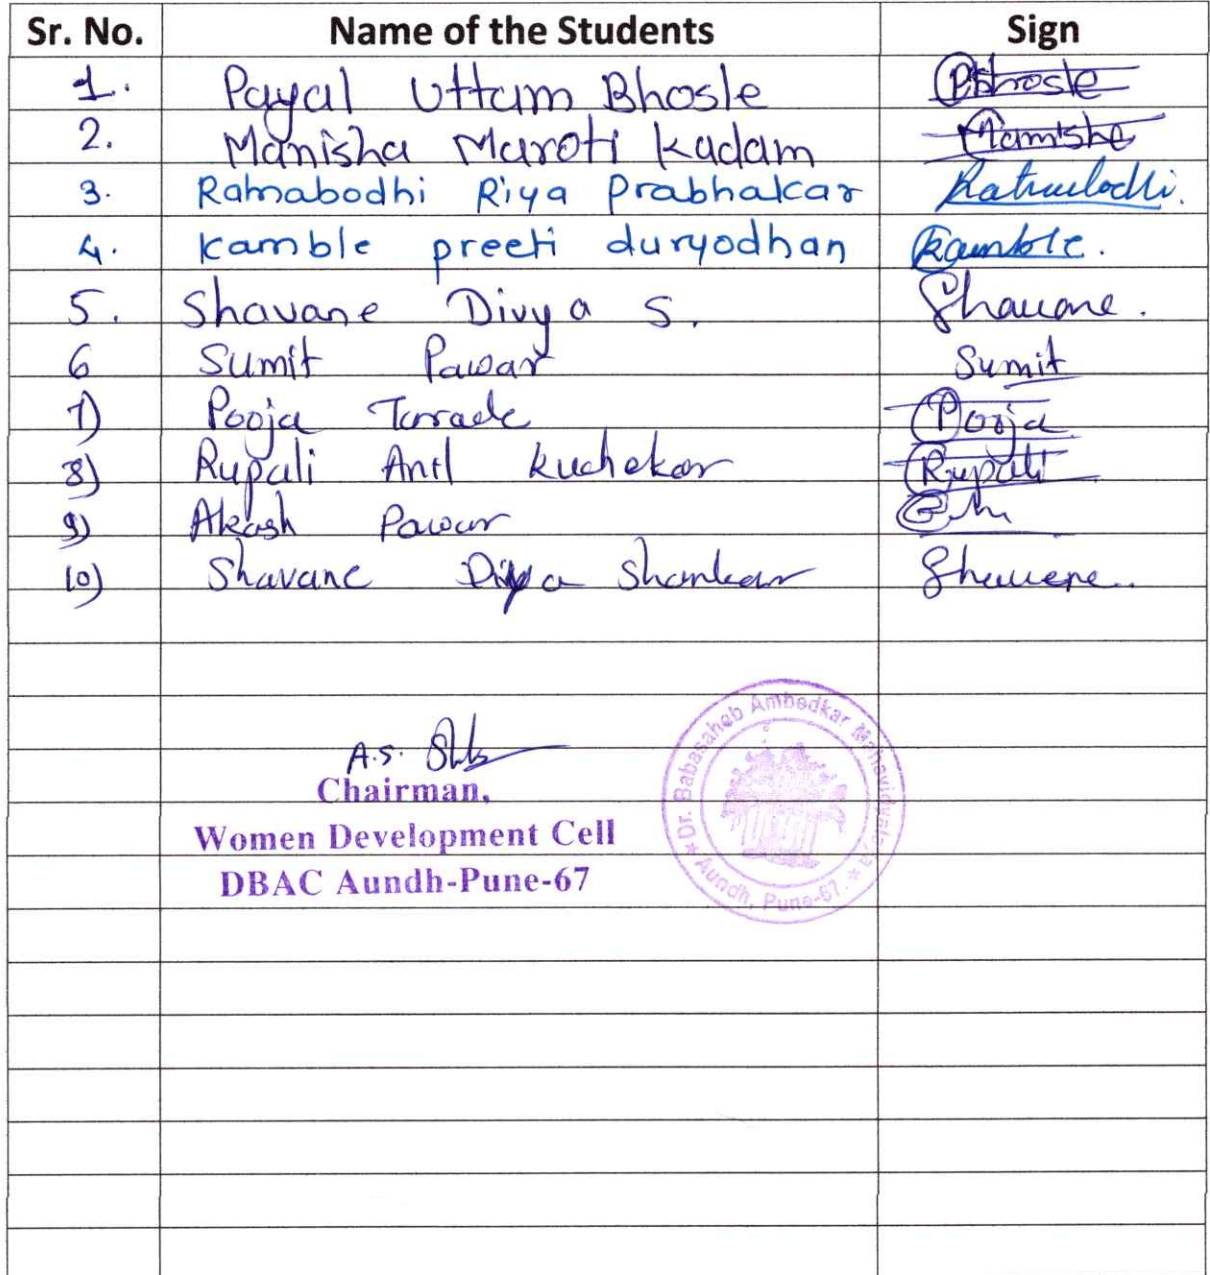 Sr. No. Name of the Students Sign
1. Payal Uttam Bhosle PBhosle
2. Manisha Maroti Kadam Manisha
3. Ratnabodhi Riya Prabhakar Ratnabodhi.
4. Kamble preeti duryodhan Kamble.
5. Shavane Divya S. Shavane.
6 Sumit Pawar Sumit
7) Pooja Pooja
8) Rupali Anil Kuchekar Rupali
9) Akash Pawar
10) Shavane Divya Shankar Shavane..
A.S.
Chairman,
Women Development Cell
DBAC Aundh-Pune-67
Dr. Babasaheb Ambedkar Mahavidyalaya
Aundh, Pune-67.